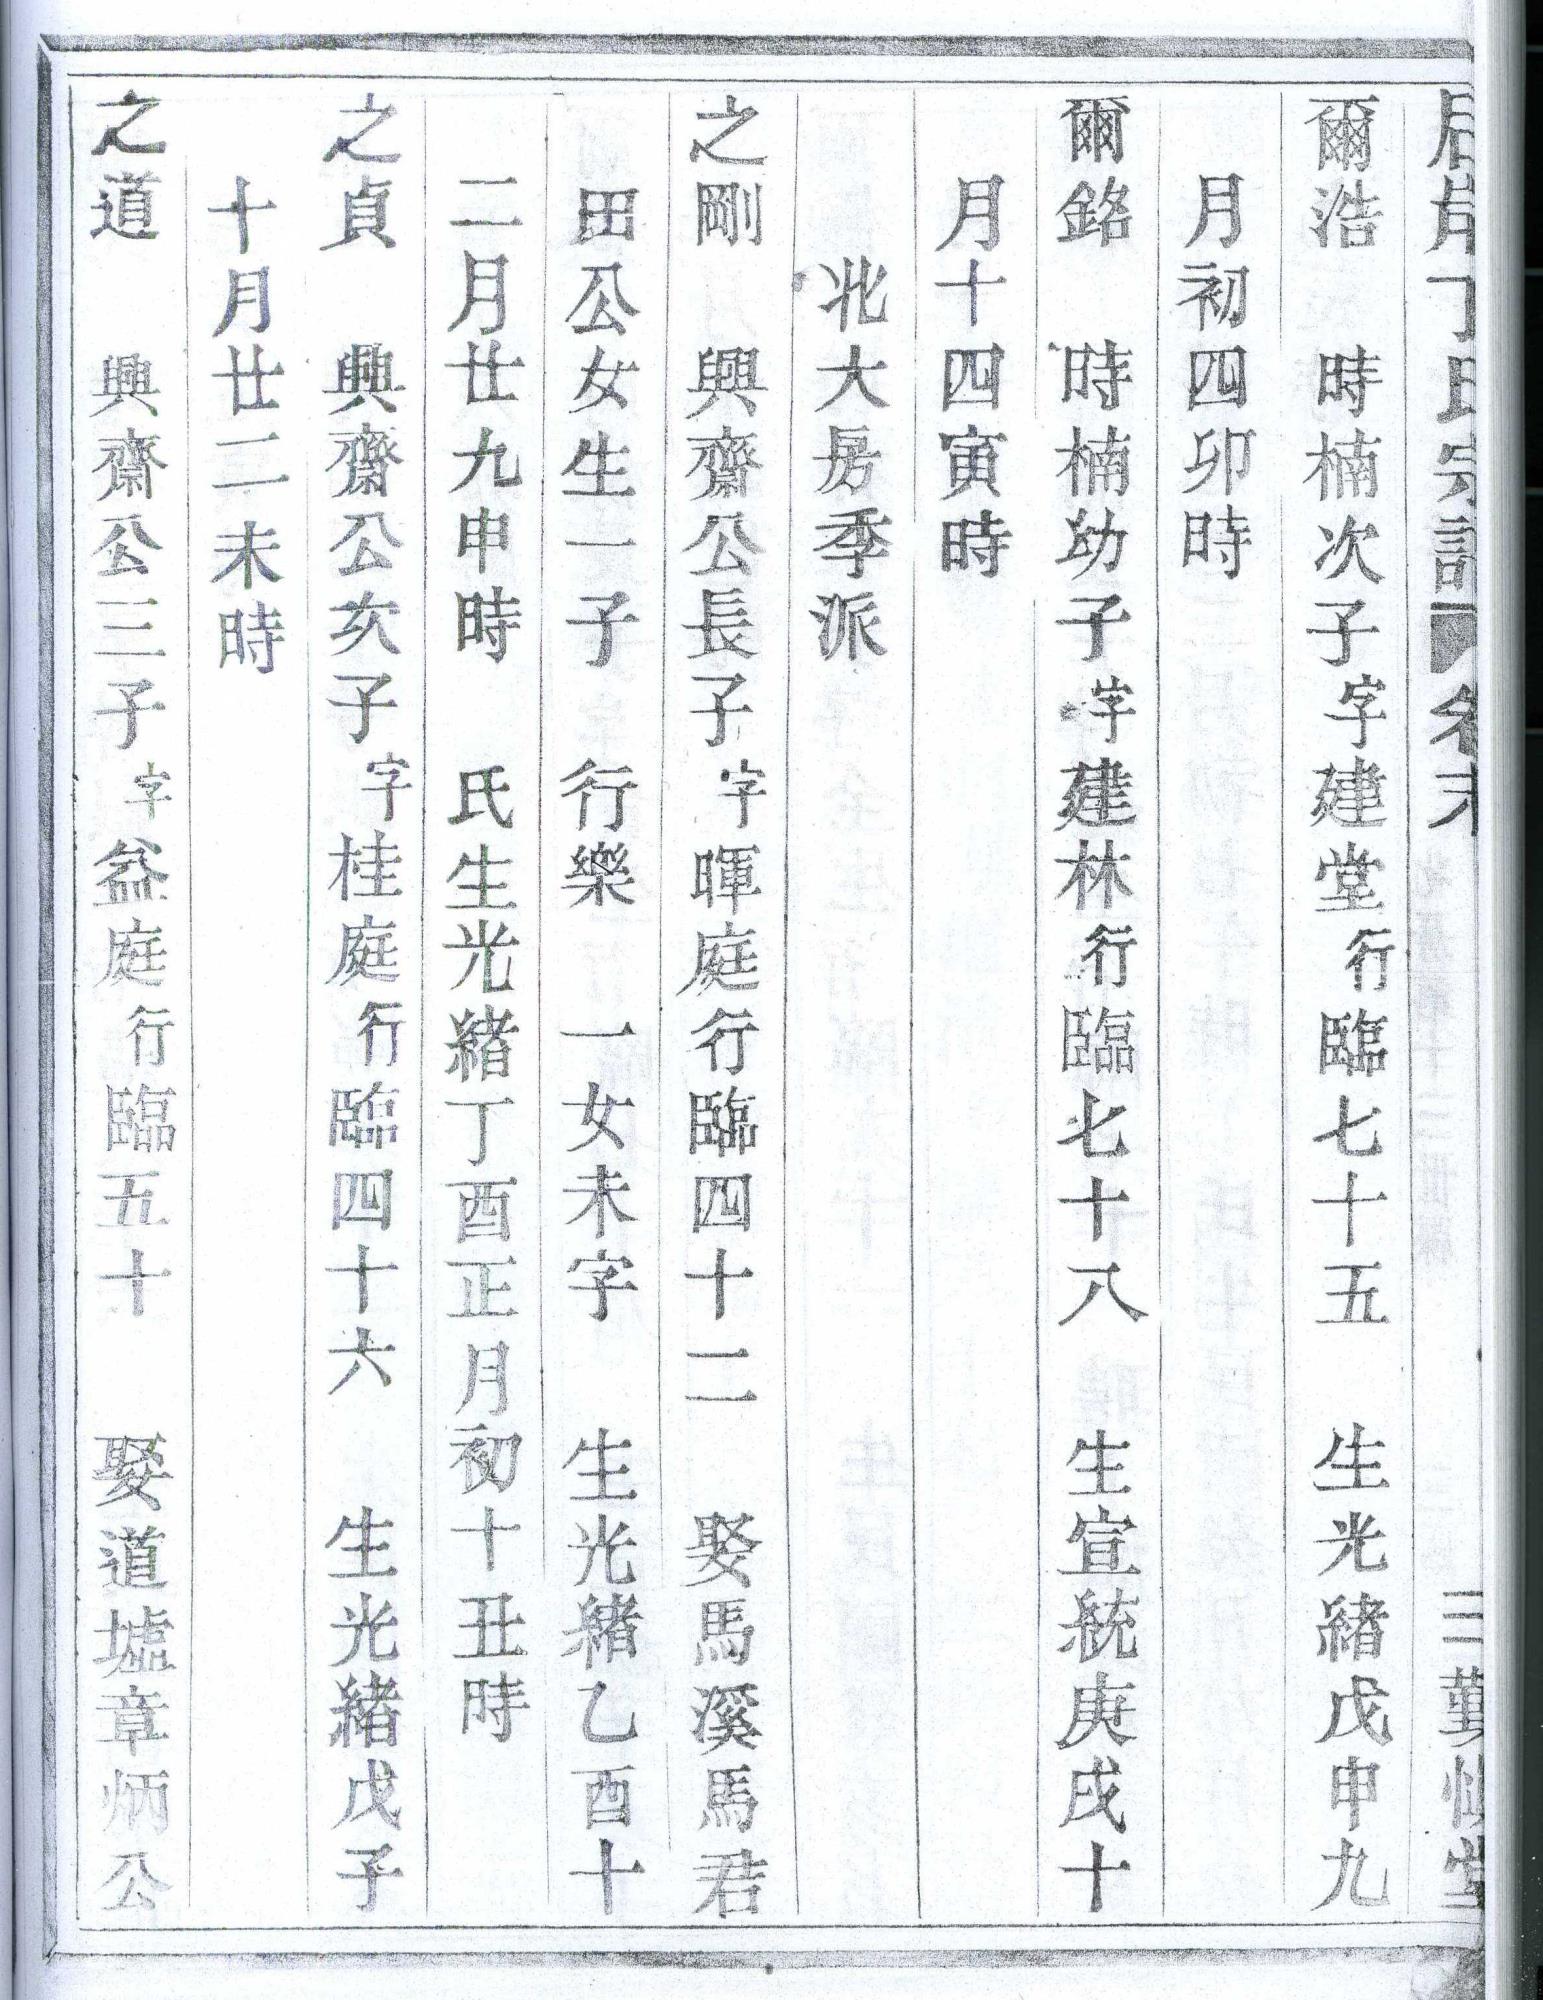 丁氏宗譜 卷末 三 勤慎堂
爾浩 時楠次子字建堂行臨七十五 生光緒戊申九
月初四卯時
爾銘 時楠幼子字建林行臨七十八 生宣統庚戌十
月十四寅時
北大房季派
之剛 興齋公長子字暉庭行臨四十二 娶馬溪馬君
田公女生一子 行樂 一女未字 生光緒乙酉十
二月廿九申時 氏生光緒丁酉正月初十丑時
之貞 興齋公次子字桂庭行臨四十六 生光緒戊子
十月廿二未時
之道 興齋公三子字益庭行臨五十 娶道墟章炳公